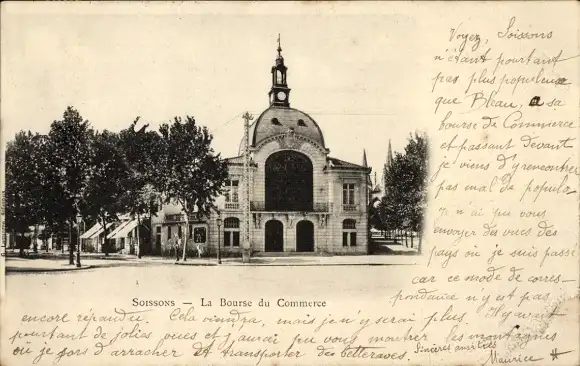 Voyez, Soissons
n'étant pourtant
pas plus populeuse
que Bleau, a sa
bourse de Commerce
et passant devant
je viens d'y rencontrer
pas mal de popula-
Je n'ai pu vous
envoyer des vues des
pays où je suis passé
car ce mode de corres-
pondance n'y est pas
Soissons — La Bourse du Commerce
encore répandu. Cela viendra, mais je n'y serai plus. Il y avait
pourtant de jolies choses et j'aurais pu vous montrer les montagnes
où je sors d'arracher et transporter des betteraves. Sincères amitiés
Maurice